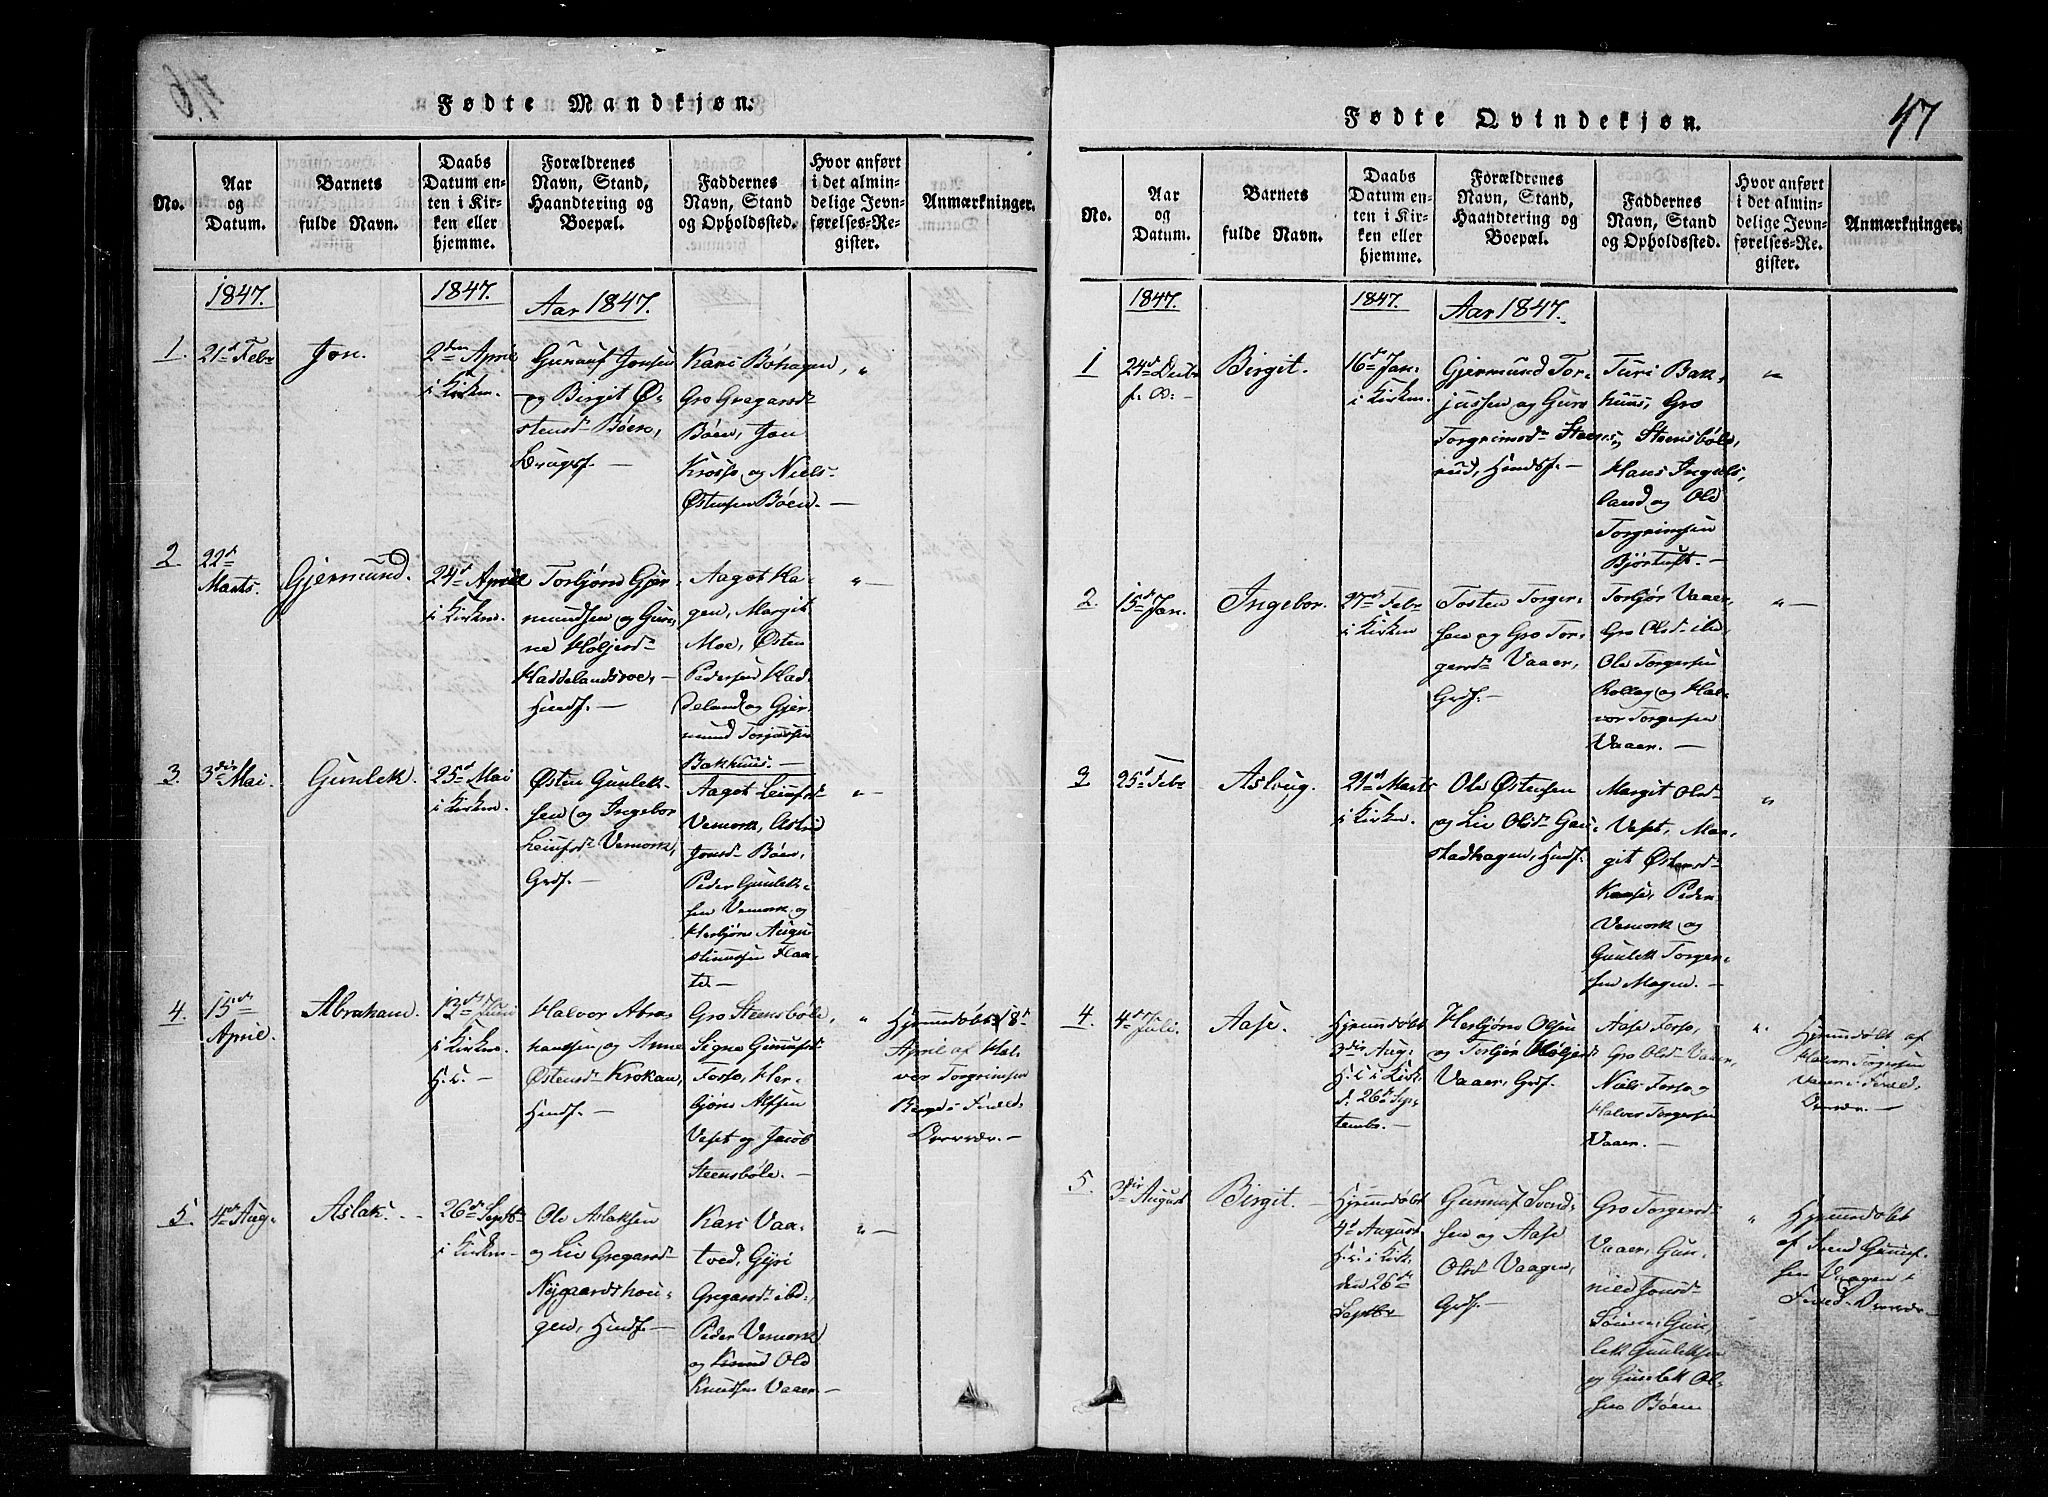 Fødte Mandkjøn.
No.
Aar
og
Datum.
Barnets
fulde Navn.
Daabs
Datum en-
ten i Kir-
ken eller
hjemme.
Forældrenes
Navn, Stand,
Haandtering og
Boepæl.
Faddernes
Navn, Stand
og Opholdssted.
Hvor anført
i det almin-
delige Jevn-
førelses-Re-
gister.
Anmærkninger.
1847.
1847.
Aar 1847.
1.
21d Febr
Jon.
2den April
i Kirken.
Gunnuf Jonsen
og Birgit Ø-
stensd. Bøen,
Brugsf. —
Kari Bøhagen,
Gro Gregarsd.
Bøen, Jon
Krosso og Niels
Østensen Bøen. —
"
2.
22d
Marts.
Gjermund.
24d April
i Kirken.
Torbjørn Gjer-
mundsen og Gun-
ne Høljersd.
Haddelandsmoe,
Huusf. —
Aagot Ha-
gen, Margit
Moe, Østen
Pedersen Had-
deland og Gjer-
mund Torjussen
Bakhuus. —
" —
3.
3die Mai.
Gunlek.
25d Mai
i Kirken.
Østen Gunlek-
sen og Ingebor
Leinfsd. Vemork,
Grdf. —
Aagot Leinfsd.
Vemork, Astri
Jonsd. Bøen,
Peder Gunlek-
sen Vemork og
Herbjørn Augu-
stinussen Flaa-
te. —
" —
4.
15de
April.
Abraham.
13de Juni
i Kirken.
H. C. —
Halvor Abra-
hamsen og Anne
Østensd. Krokan,
Huusf. —
Gro Steensbøle,
Signe Gunnufsd.
Forso, Her-
bjørn Alfsen
Vesset og Jacob
Steensbøle. —
"
Hjemmedøbt 18d
April af Hal-
vor Torgrimsen
Berge i Foræld.
Overvær. —
5.
4de Aug.
Aslak. -
26d Septbr
i Kirken —
Ole Aslaksen
og Liv Gregarsd.
Nygaardshou-
gen, Huusf. —
Kari Vaa-
tved, Gyri
Gregarsd. ibd.,
Peder Vemork
og Knud Ole
Knudsen Vaaer. —
" —
Fødte Qvindekjøn.
47
No.
Aar
og
Datum.
Barnets
fulde Navn.
Daabs
Datum en-
ten i Kir-
ken eller
hjemme.
Forældrenes
Navn, Stand,
Haandtering og
Boepæl.
Faddernes
Navn, Stand
og Opholdssted.
Hvor anført
i det almin-
delige Jevn-
førelses-Re-
gister.
Anmærkninger.
1847.
1847.
Aar 1847.
1
24d Decbr
f. A. —
Birgit.
16de Jan.
i Kirken.
Gjermund Tor-
jussen og Guro
Torgrimsd. Steens-
rud, Huusf. —
Turi Bak-
huus, Gro
Steensbøle,
Hans Inguls-
land og Ole
Torgrimsen
Bjørtuft. —
" —
2.
15de Jan.
Ingebor.
27d Febr
i Kirken
Tosten Torger-
sen og Gro Tor-
gersd. Vaaer,
Grdf. —
Torbjør Vaaer,
Gro Olsd. ibd.,
Ole Torgersen
Rollag og Hal-
vor Torgersen
Vaaer. —
" —
3
25d Febr
Aslaug.
21d Marts
i Kirken.
Ole Østensen
og Liv Olsd. Gau-
stadhagen, Huusf.
Margit Olsd.
Vesset, Mar-
git Østensd.
Kaase, Peder
Vemork og
Gunlek Torger-
sen Mogen. —
"
4.
4de Juli.
Aase.
Hjemmedøbt
3die Aug.
H. C. i Kirk.
d. 26d Sep-
tember. —
Herbjørn Olsen
og Torbjør Høljersd.
Vaaer, Grdf.
Aase Forso,
Gro Olsd. Vaaer,
Niels Forso og
Halvor Torgersen
Vaaer. —
"
Hjemmedøbt af
Halvor Torgersen
Vaaer i Foræld.
Overvær. —
5.
3die August
Birgit.
Hjemmedøbt
4d August
H. C. i Kirk.
den 26de
Septbr
Gunnuf Svend-
sen og Aase
Olsd. Vaagen,
Grdf. —
Gro Torgersd.
Vaaer, Gun-
nild Jonsd.
Gun-
lek Gunleksen
og Gunlek Ol-
sen Bøen
"
Hjemmedøbt
af Svend Gunnuf-
sen Vaagen i
Foræld. Overvær —